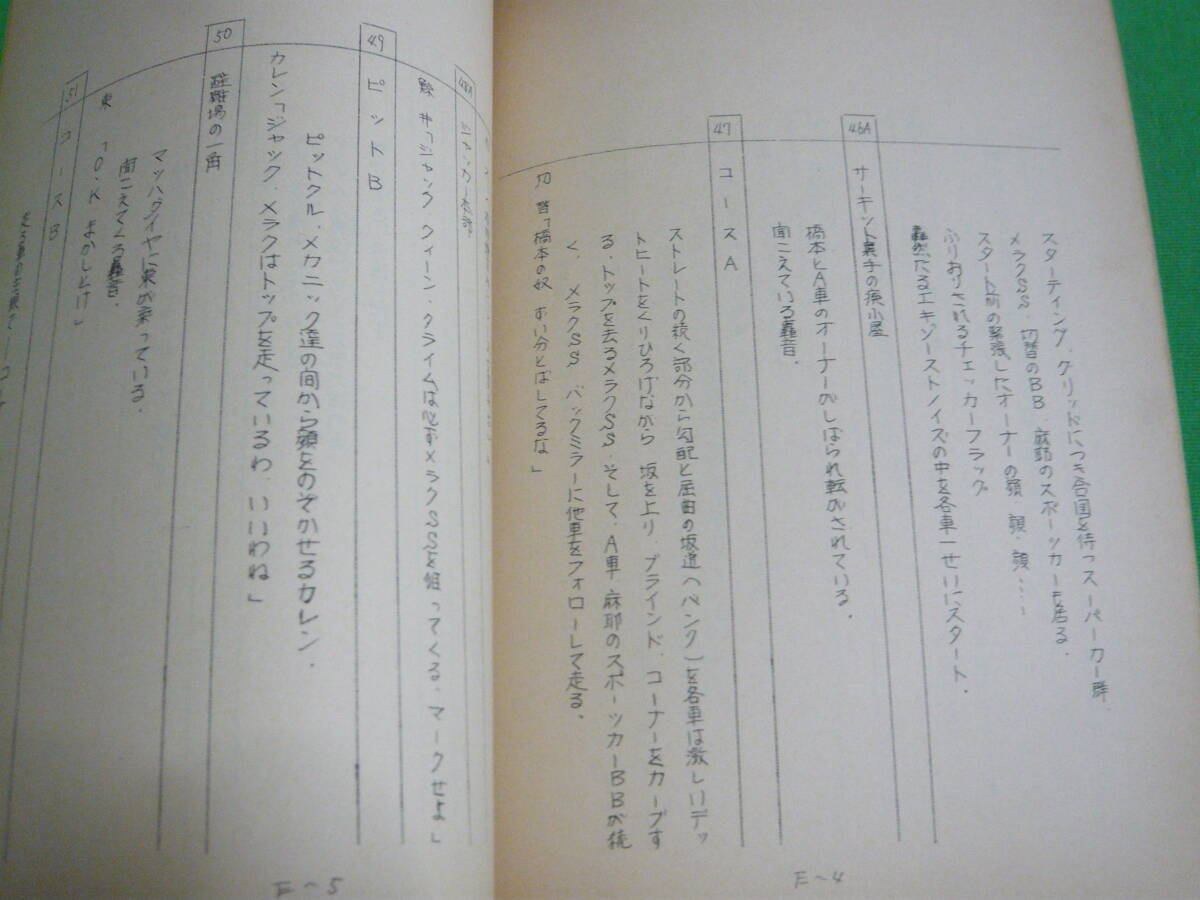 スターティング・グリッドにつき合図を待つスーパーカー群
メラクSS、切替のBB、麻耶のスポーツカーも居る。
スタート前の緊張したオーナーの顔・顔・顔……
ふりおりされるチェッカーフラッグ
轟然たるエキゾーストノイズの中を各車一せいにスタート。
46A サーキット裏手の廃小屋
橋本とA車のオーナーがしばられ転がされている。
聞こえている轟音。
47 コースA
ストレートの続く部分から勾配と屈曲の坂道(バンク)を各車は激しいデッ
トヒートをくりひろげながら 坂を上り、ブラインド・コーナーをカーブす
る、トップを去るメラクSS、そして、A車 麻耶のスポーツカーBBが続
く、メラクSS バックミラーに他車をフォローして走る。
切替「橋本の奴 ずい分とばしてるな」
48A ジャッカー本部
鯨井「ジャック クィーン、クライムは必ずメラクSSを狙ってくる、マークせよ」
49 ピットB
ピットクル、メカニック達の間から顔をのぞかせるカレン。
カレン「ジャック、メラクはトップを走っているわ、いいわね」
50 駐車場の一角
マッハダイヤに東が乗っている。
聞こえてくる轟音。
東「O・K まかしとけ」
51 コースB